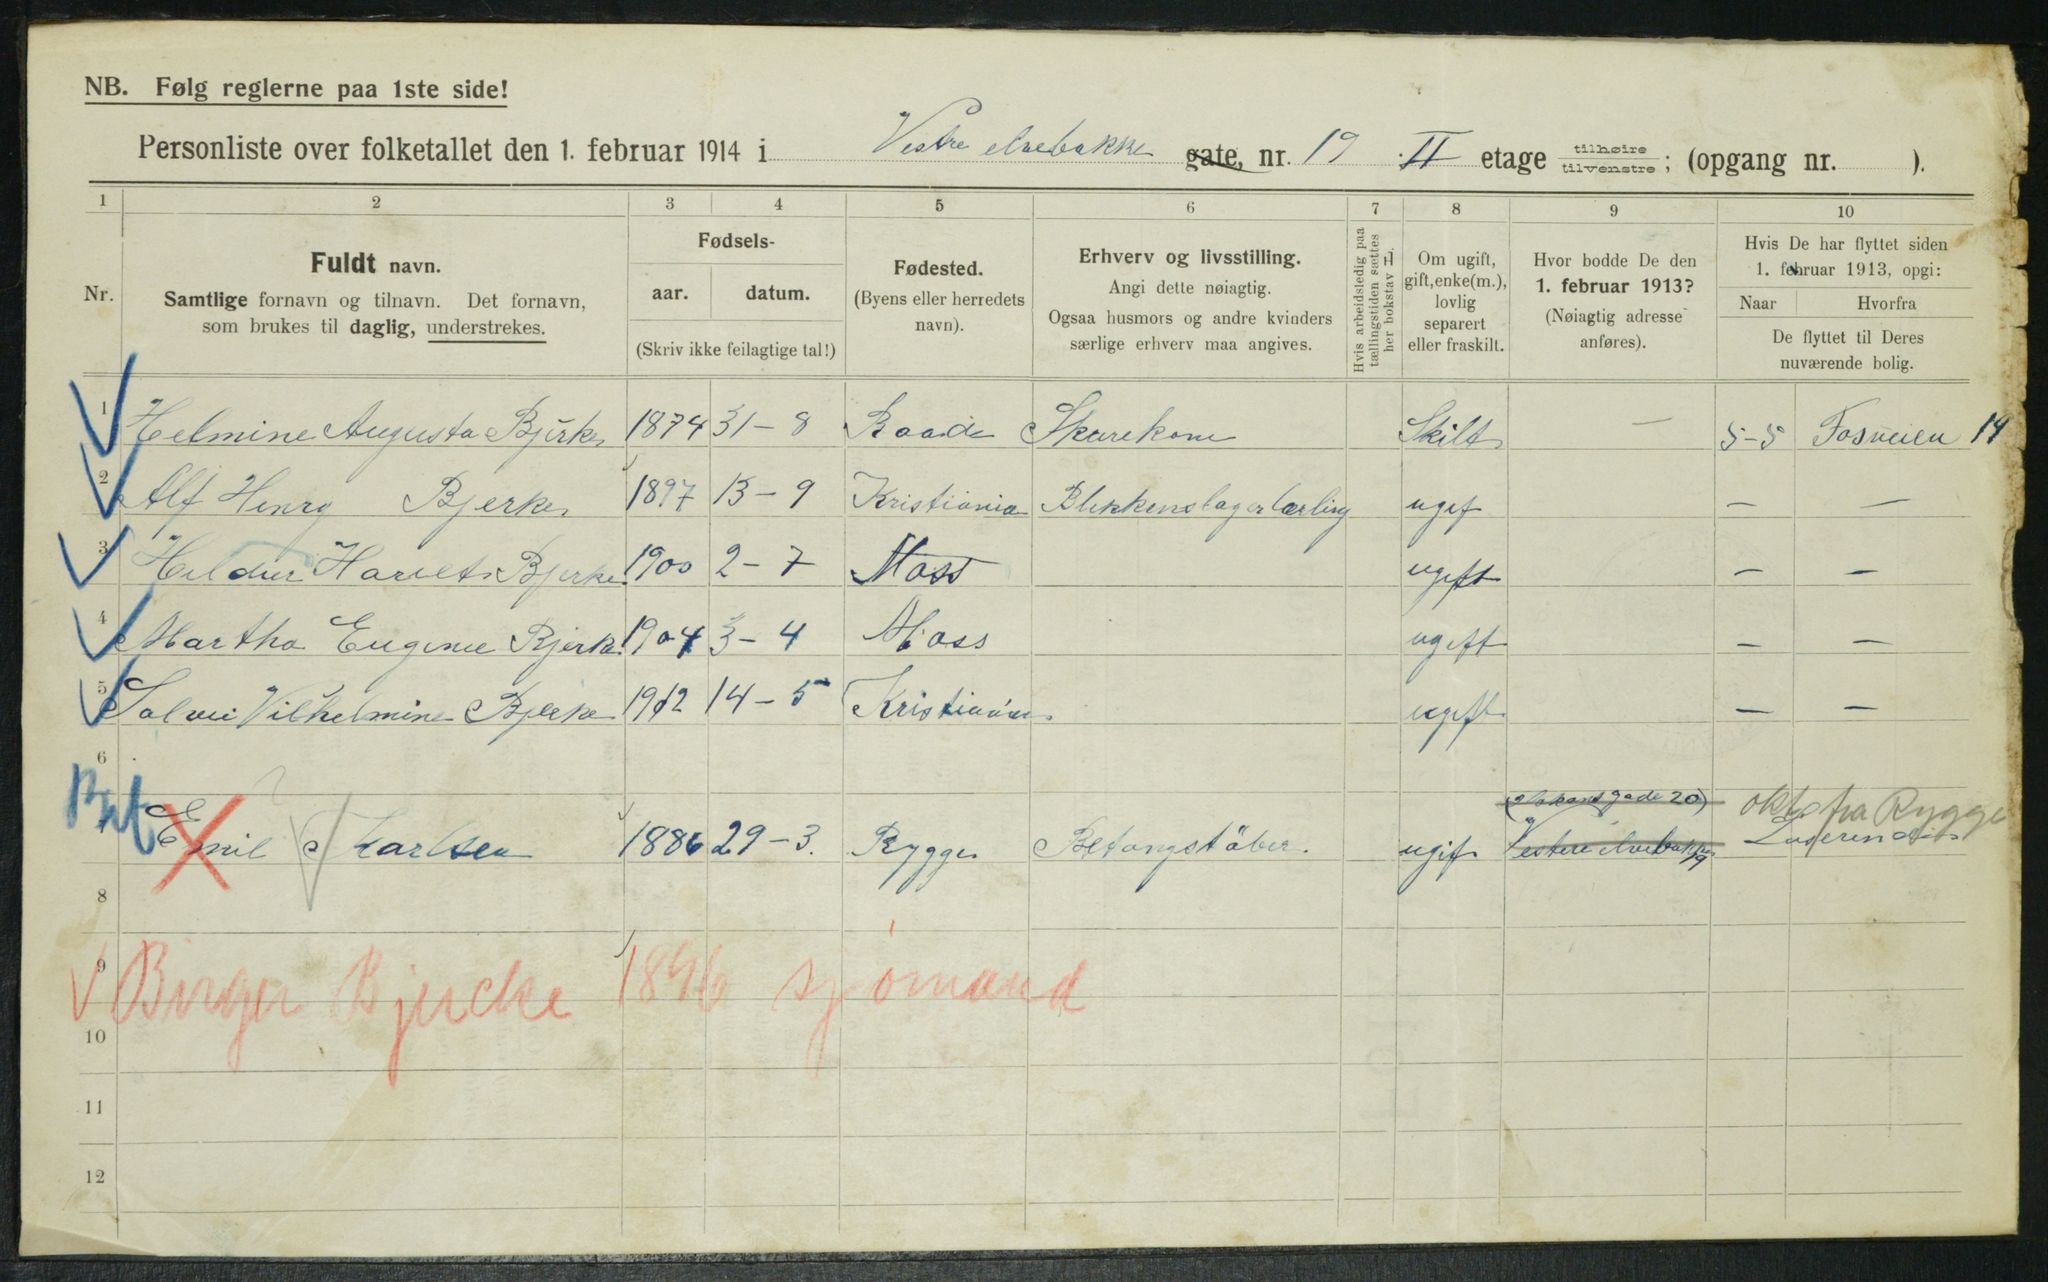 NB. Følg reglerne paa 1ste side!
Personliste over folketallet den 1. februar 1914 i Vestre elvebakke gate, nr. 19 II etage tilhøire tilvenstre; (opgang nr. ).
1 2 3 4 5 6 7 8 9 10
Nr.
Fuldt navn.
Samtlige fornavn og tilnavn. Det fornavn,
som brukes til daglig, understrekes.
Fødsels-
aar. datum.
(Skriv ikke feilagtige tal!)
Fødested.
(Byens eller herredets
navn).
Erhverv og livsstilling.
Angi dette nøiagtig.
Ogsaa husmors og andre kvinders
særlige erhverv maa angives.
Hvis arbeidsledig paa
tællingstiden sættes
her bokstav L.
Om ugift,
gift, enke(m.),
lovlig
separert
eller fraskilt.
Hvor bodde De den
1. februar 1913?
(Nøiagtig adresse
anføres).
Hvis De har flyttet siden
1. februar 1913, opgi:
Naar Hvorfra
De flyttet til Deres
nuværende bolig.
1 Helmine Augusta Bjerke 1874 31-8 Raade Skurekone Skilt — 5-5 Fosveien 14
2 Alf Henry Bjerke 1897 13-9 Kristiania Blikkenslagerlærling ugif — —
3 Bjerke 1900 2-7 Moss ugift — —
4 Martha Eugenie Bjerke 1904 3-4 Moss ugift — —
5 Solvei Vilhelmine Bjerke 1912 14-5 Kristiania ugift — —
6
gade 20) okt fra Rygge
7 Emil Karlsen 1886 29-3. Rygge Betongstöber. ugif Vestere elvebakke 19
8
9 Birger Bjercke 1896 sjømand
10
11
12